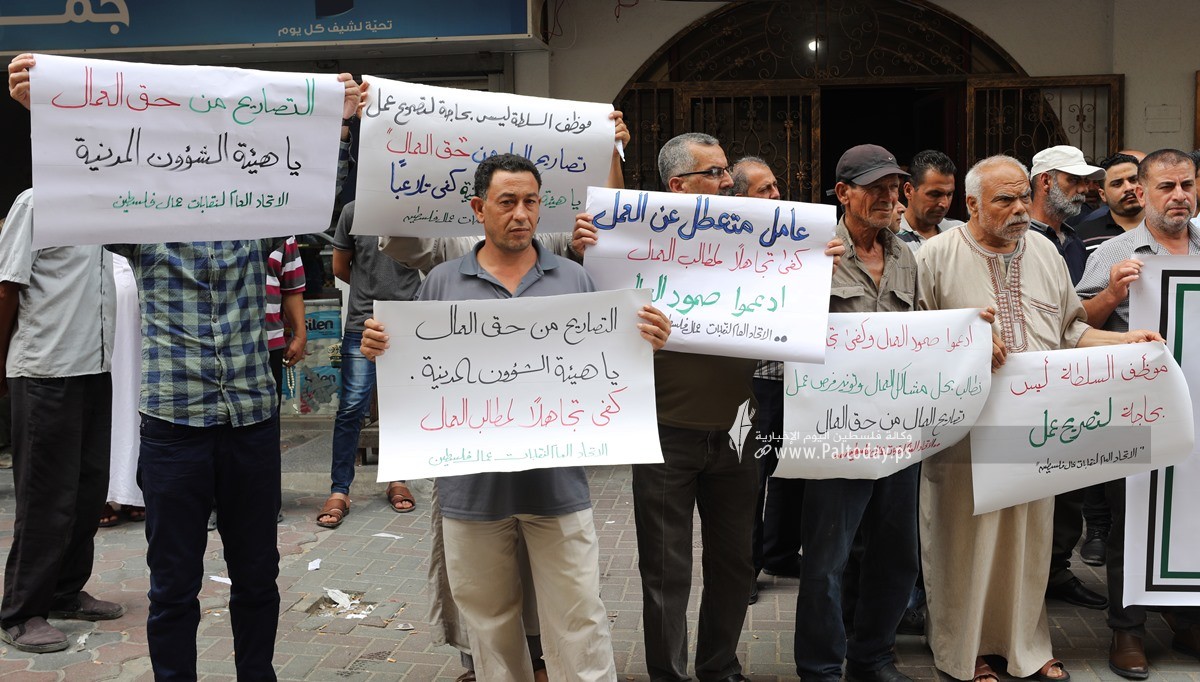 جمـ
تحيّة لشيف كل يوم
التصاريح من حق العمال
يا هيئة الشؤون المدنية
الاتحاد العام لنقابات عمال فلسطين
موظف السلطة ليس بحاجة لتصريح عمل
تصاريح من حق العمال"
يا كفى تلاعباً
عمال فلسطين
عامل متعطل عن العمل
كفى تجاهلاً لمطالب العمال
ادعموا صمود
الاتحاد العام لنقابات عمال فلسطين
التصاريح من حق العمال
يا هيئة الشؤون المدنية .
كفى تجاهلاً لمطالب العمال
الاتحاد العام لنقابات عمال فلسطين
ادعموا صمود العمال وكفى
نطالب بحل مشاكل العمال وتوفير فرص عمل
تصاريح العمال من حق العمال
موظف السلطة ليس
بحاجة لتصريح عمل
"الاتحاد العام لنقابات عمال فلسطين"
وكالة فلسطين اليوم الإخبارية
www.Paltoday.ps
ilen